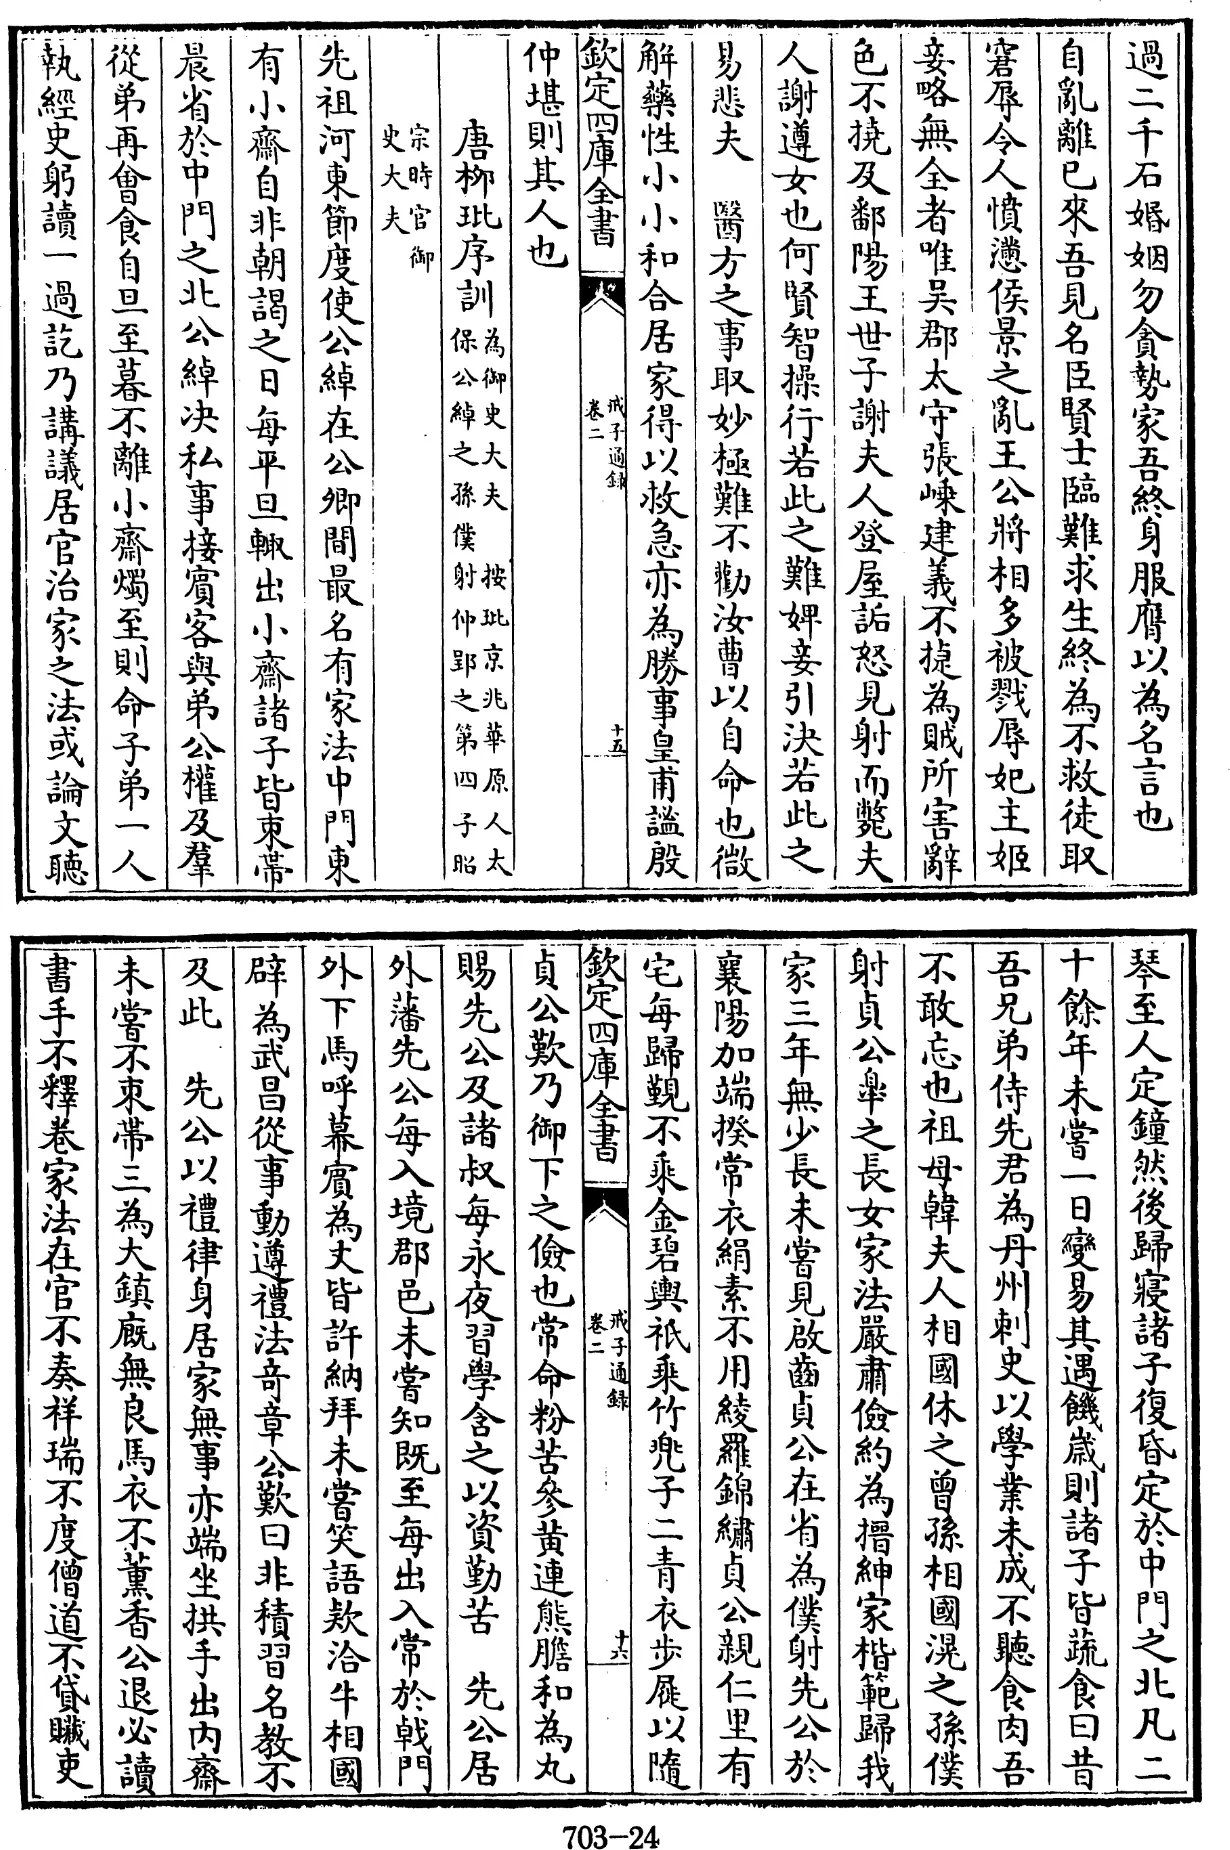 過二千石婚姻勿貪勢家吾終身服膺以為名言也
自亂離已來吾見名臣賢士臨難求生終為不救徒取
窘辱令人憤懣侯景之亂王公將相多被戮辱妃主姬
妾略無全者唯吳郡太守張嵊建義不捷為賊所害辭
色不撓及鄱陽王世子謝夫人登屋詬怒見射而斃夫
人謝遵女也何賢智操行若此之難婢妾引決若此之
易悲夫　醫方之事取妙極難不勸汝曹以自命也微
解藥性小小和合居家得以救急亦為勝事皇甫謐殷
欽定四庫全書
戒子通錄
卷二
十五
仲堪則其人也
唐柳玭序訓
為御史大夫　按玭京兆華原人太
保公綽之孫僕射仲郢之第四子昭
宗時官御
史大夫
先祖河東節度使公綽在公卿間最名有家法中門東
有小齋自非朝謁之日每平旦輒出小齋諸子皆束帶
晨省於中門之北公綽決私事接賓客與弟公權及羣
從弟再會食自旦至暮不離小齋燭至則命子弟一人
執經史躬讀一過訖乃講議居官治家之法或論文聽
琴至人定鐘然後歸寢諸子復昏定於中門之北凡二
十餘年未嘗一日變易其遇饑歲則諸子皆蔬食曰昔
吾兄弟侍先君為丹州刺史以學業未成不聽食肉吾
不敢忘也祖母韓夫人相國休之曾孫相國滉之孫僕
射貞公臯之長女家法嚴肅儉約為搢紳家楷範歸我
家三年無少長未嘗見啟齒貞公在省為僕射先公於
襄陽加端揆常衣絹素不用綾羅錦繡貞公親仁里有
宅每歸覲不乘金碧輿祇乘竹兠子二青衣步屣以隨
欽定四庫全書
戒子通錄
卷二
十六
貞公歎乃御下之儉也常命粉苦參黄連熊膽和為丸
賜先公及諸叔每永夜習學含之以資勤苦　先公居
外藩先公每入境郡邑未嘗知既至每出入常於戟門
外下馬呼幕賓為丈皆許納拜未嘗笑語欵洽牛相國
辟為武昌從事動遵禮法竒章公歎曰非積習名教不
及此　先公以禮律身居家無事亦端坐拱手出内齋
未嘗不束帶三為大鎮廐無良馬衣不薫香公退必讀
書手不釋卷家法在官不奏祥瑞不度僧道不貸贓吏
703-24